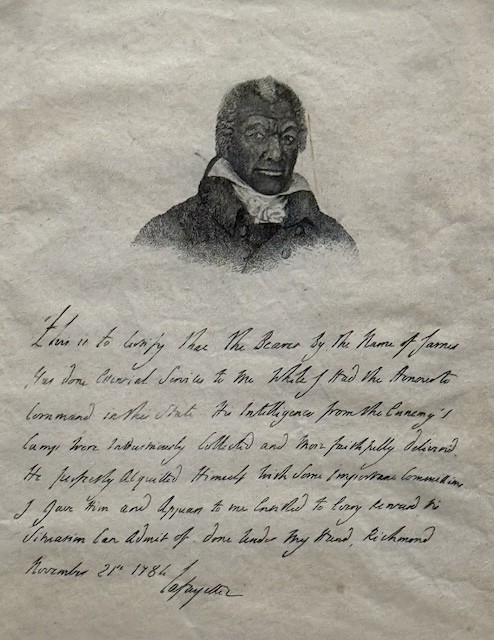 This is to Certify that the Bearer By the Name of James
Has done Essential Services to me While I Had the Honour to
Command in this State. His Intelligences from the Ennemy's
Camp were Industriously Collected and More faithfully deliver'd.
He perfectly Acquitted Himself with Some Important Commissions
I Gave Him and Appears to me Entitled to Every Reward His
Situation Can Admit of. done Under My Hand, Richmond
November 21st 1784
Lafayette